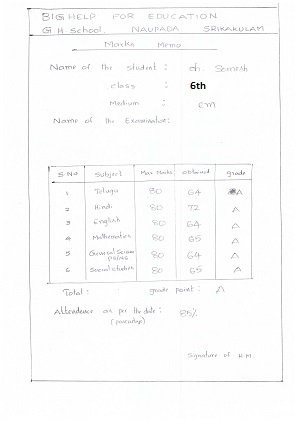 BIG HELP FOR EDUCATION
G.H. School. NAUPADA SRIKAKULAM
Marks Memo
Name of the student: ch. Somesh
class : 6th
Medium : em
Name of the Examination:
S.No Subject Max Marks obtained grade
1 Telugu 80 64 A
2 Hindi 80 72 A
3 English 80 64 A
4 Mathematics 80 65 A
5 General Science 80 64 A
6 Social studies 80 65 A
Total: grade point: A
Attendence as per the date: 85%
(percentage)
Signature of H.M.